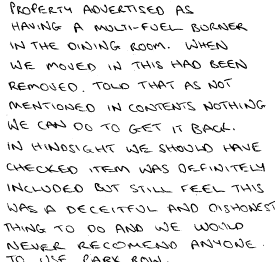 PROPERTY ADVERTISED AS
HAVING A MULTI-FUEL BURNER
IN THE DINING ROOM. WHEN
WE MOVED IN THIS HAD BEEN
REMOVED. TOLD THAT AS NOT
MENTIONED IN CONTENTS NOTHING
WE CAN DO TO GET IT BACK.
IN HINDSIGHT WE SHOULD HAVE
CHECKED ITEM WAS DEFINITELY
INCLUDED BUT STILL FEEL THIS
WAS A DECEITFUL AND DISHONEST
THING TO DO AND WE WOULD
NEVER RECOMEND ANYONE.
TO USE PARK ROW.